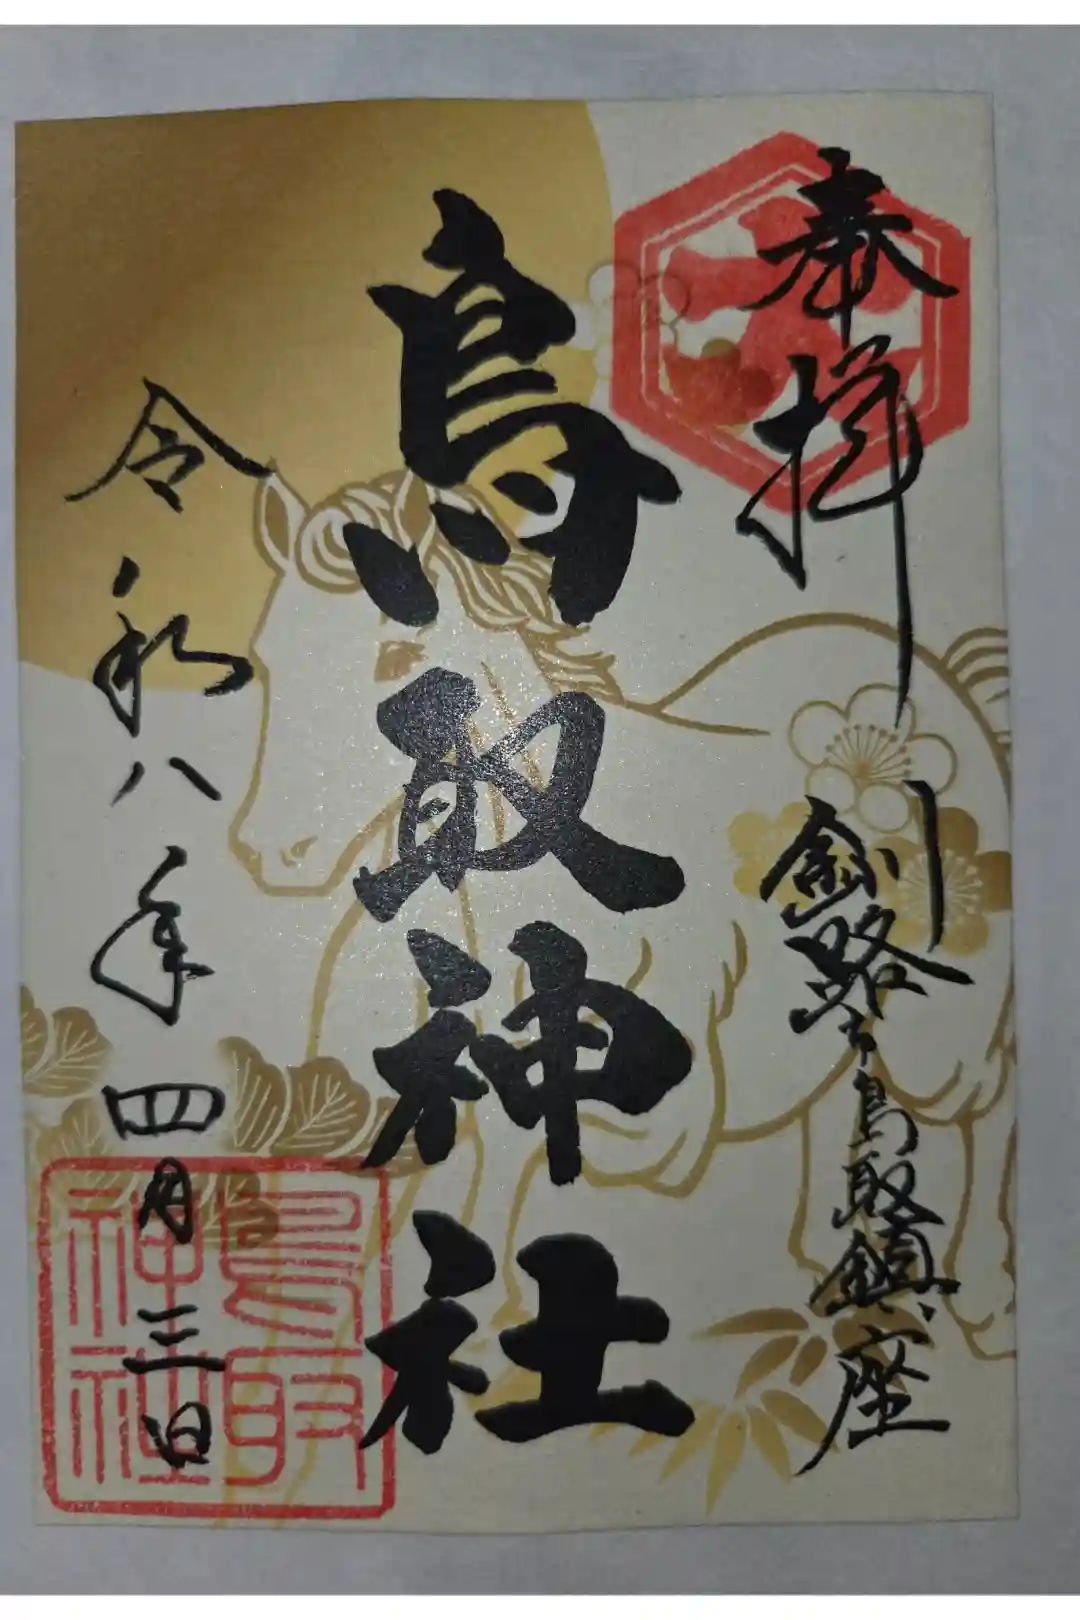 奉拝
釧路市鳥取鎮座
鳥取神社
令和八年四月三日
鳥取
神社